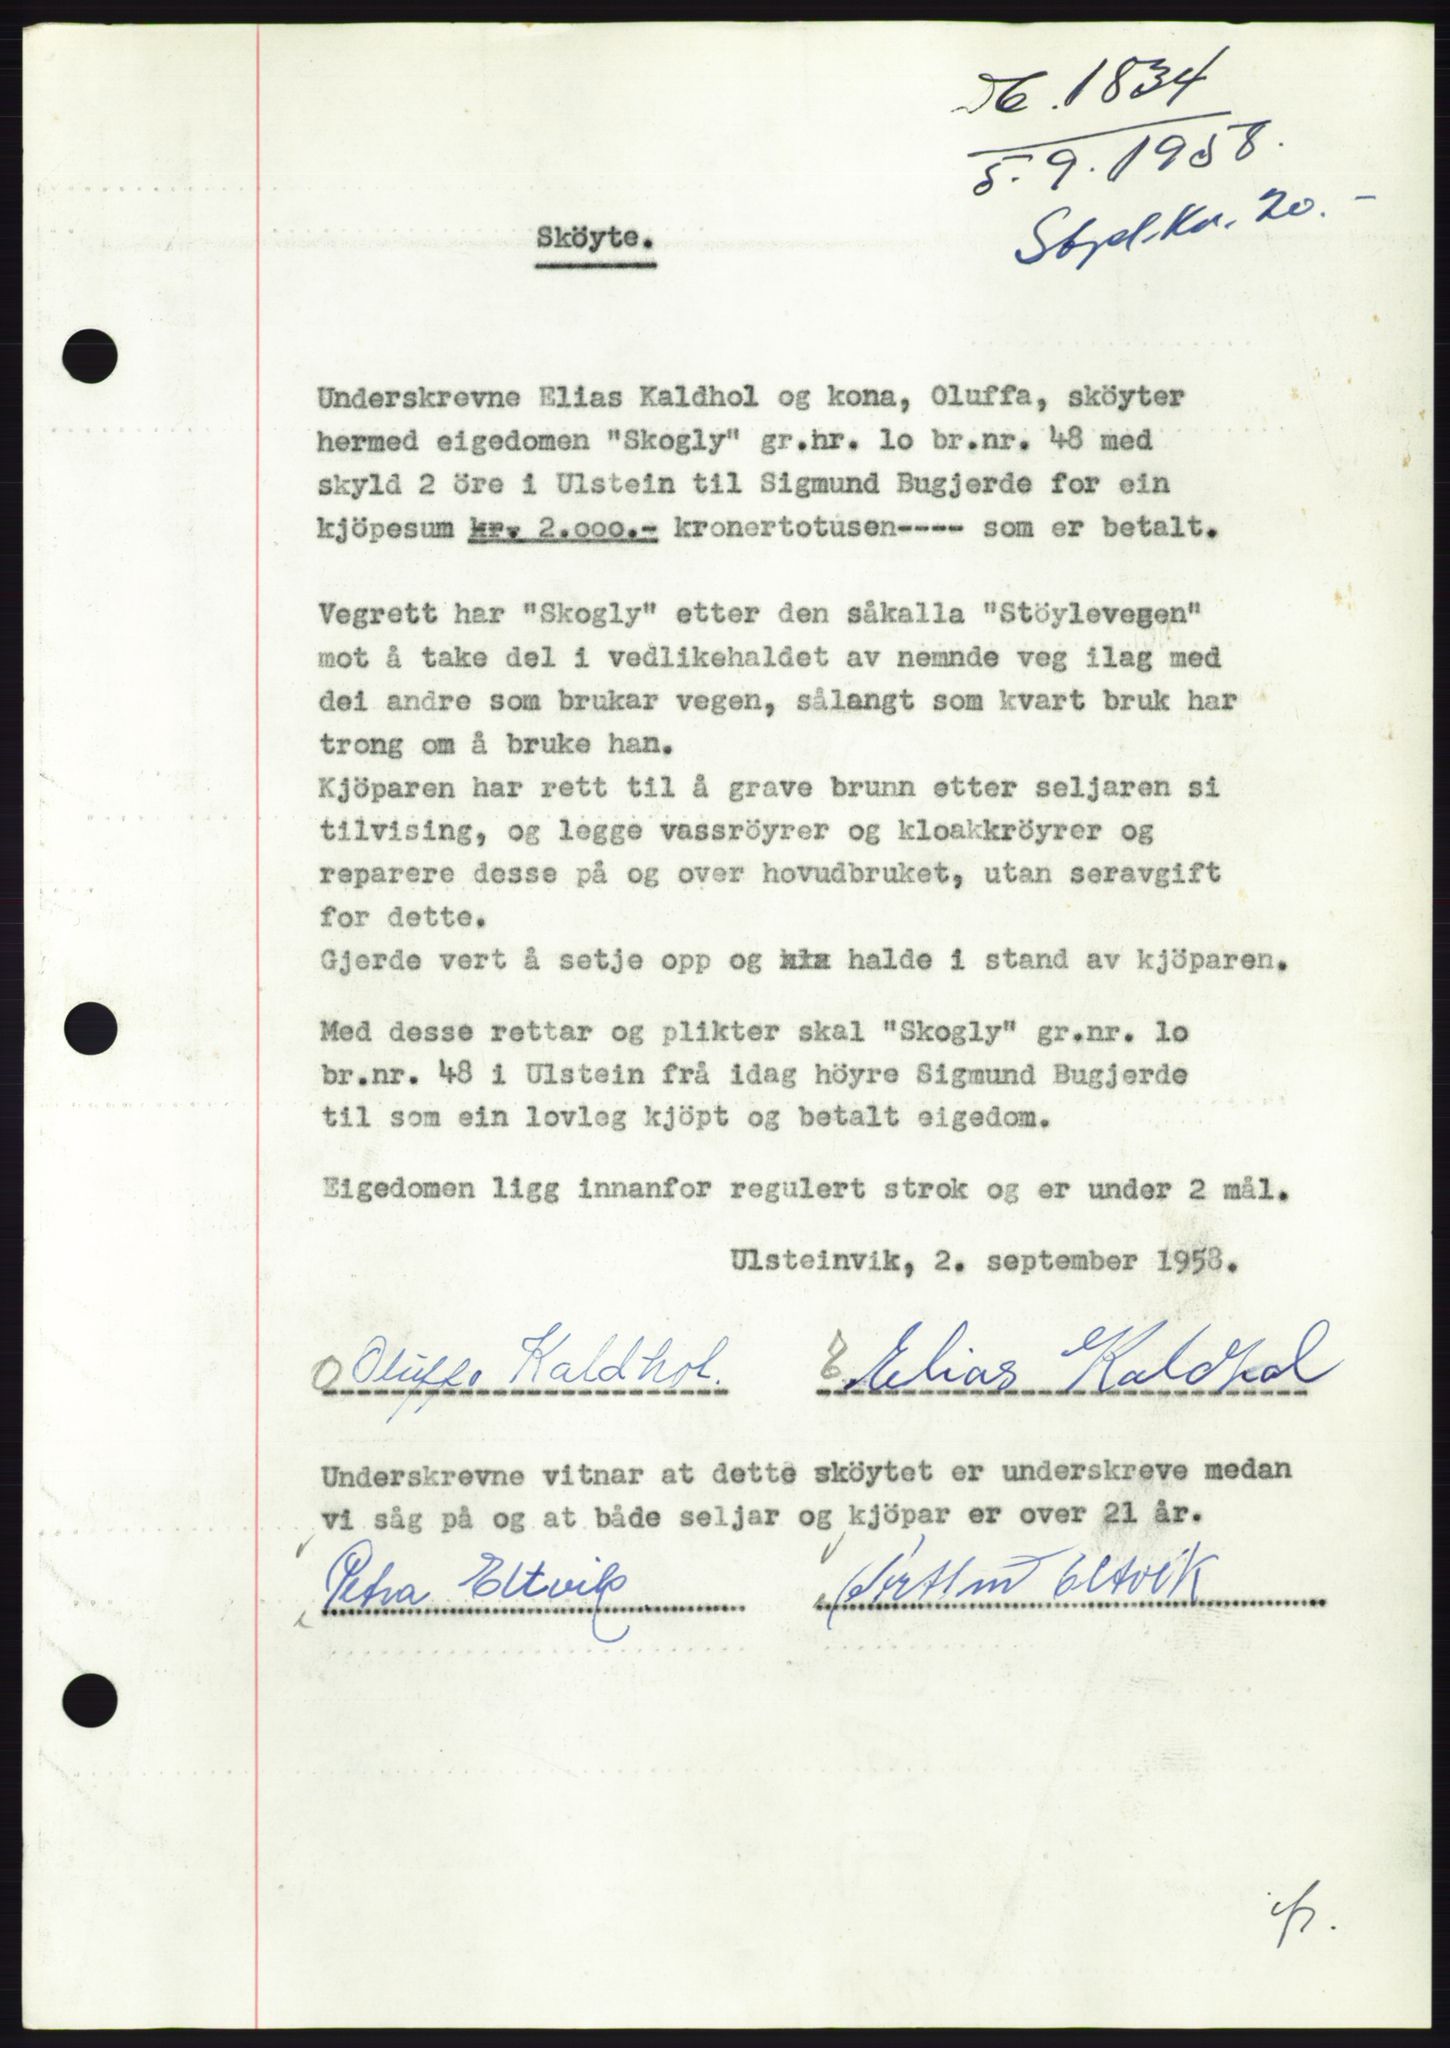 Db. 1834
5.9.1958.
Stpl. Kr. 20.-
Sköyte.
Underskrevne Elias Kaldhol og kona, Oluffa, sköyter
hermed eigedomen "Skogly" gr.hr. lo br.nr. 48 med
skyld 2 öre i Ulstein til Sigmund Bugjerde for ein
kjöpesum kr. 2.ooo.- kronertotusen---- som er betalt.
Vegrett har "Skogly" etter den såkalla "Stöylevegen"
mot å take del i vedlikehaldet av nemnde veg ilag med
dei andre som brukar vegen, sålangt som kvart bruk har
trong om å bruke han.
Kjöparen har rett til å grave brunn etter seljaren si
tilvising, og legge vassröyrer og kloakkröyrer og
reparere desse på og over hovudbruket, utan seravgift
for dette.
Gjerde vert å setje opp og halde i stand av kjöparen.
Med desse rettar og plikter skal "Skogly" gr.nr. lo
br.nr. 48 i Ulstein frå idag höyre Sigmund Bugjerde
til som ein lovleg kjöpt og betalt eigedom.
Eigedomen ligg innanfor regulert strok og er under 2 mål.
Ulsteinvik, 2. september 1958.
Oluffa Kaldhol. Elias Kaldhol
Underskrevne vitnar at dette sköytet er underskreve medan
vi såg på og at både seljar og kjöpar er over 21 år.
Petra Eltvik Eltvik